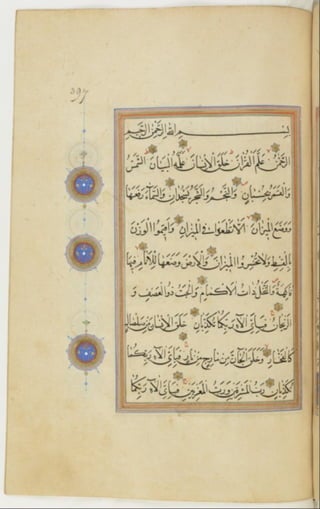 بِسْمِ اللهِ الرَّحْمٰنِ الرَّحِيمِ
الرَّحْمٰنُ عَلَّمَ الْقُرْآنَ خَلَقَ الْإِنْسَانَ عَلَّمَهُ الْبَيَانَ الشَّمْسُ
وَالْقَمَرُ بِحُسْبَانٍ وَالنَّجْمُ وَالشَّجَرُ يَسْجُدَانِ وَالسَّمَاءَ رَفَعَهَا
وَوَضَعَ الْمِيزَانَ أَلَّا تَطْغَوْا فِي الْمِيزَانِ وَأَقِيمُوا الْوَزْنَ
بِالْقِسْطِ وَلَا تُخْسِرُوا الْمِيزَانَ وَالْأَرْضَ وَضَعَهَا لِلْأَنَامِ فِيهَا
فَاكِهَةٌ وَالنَّخْلُ ذَاتُ الْأَكْمَامِ وَالْحَبُّ ذُو الْعَصْفِ وَ
الرَّيْحَانُ فَبِأَيِّ آلَاءِ رَبِّكُمَا تُكَذِّبَانِ خَلَقَ الْإِنْسَانَ مِنْ صَلْصَالٍ
كَالْفَخَّارِ وَخَلَقَ الْجَانَّ مِنْ مَارِجٍ مِنْ نَارٍ فَبِأَيِّ آلَاءِ رَبِّكُمَا
تُكَذِّبَانِ رَبُّ الْمَشْرِقَيْنِ وَرَبُّ الْمَغْرِبَيْنِ فَبِأَيِّ آلَاءِ رَبِّكُمَا